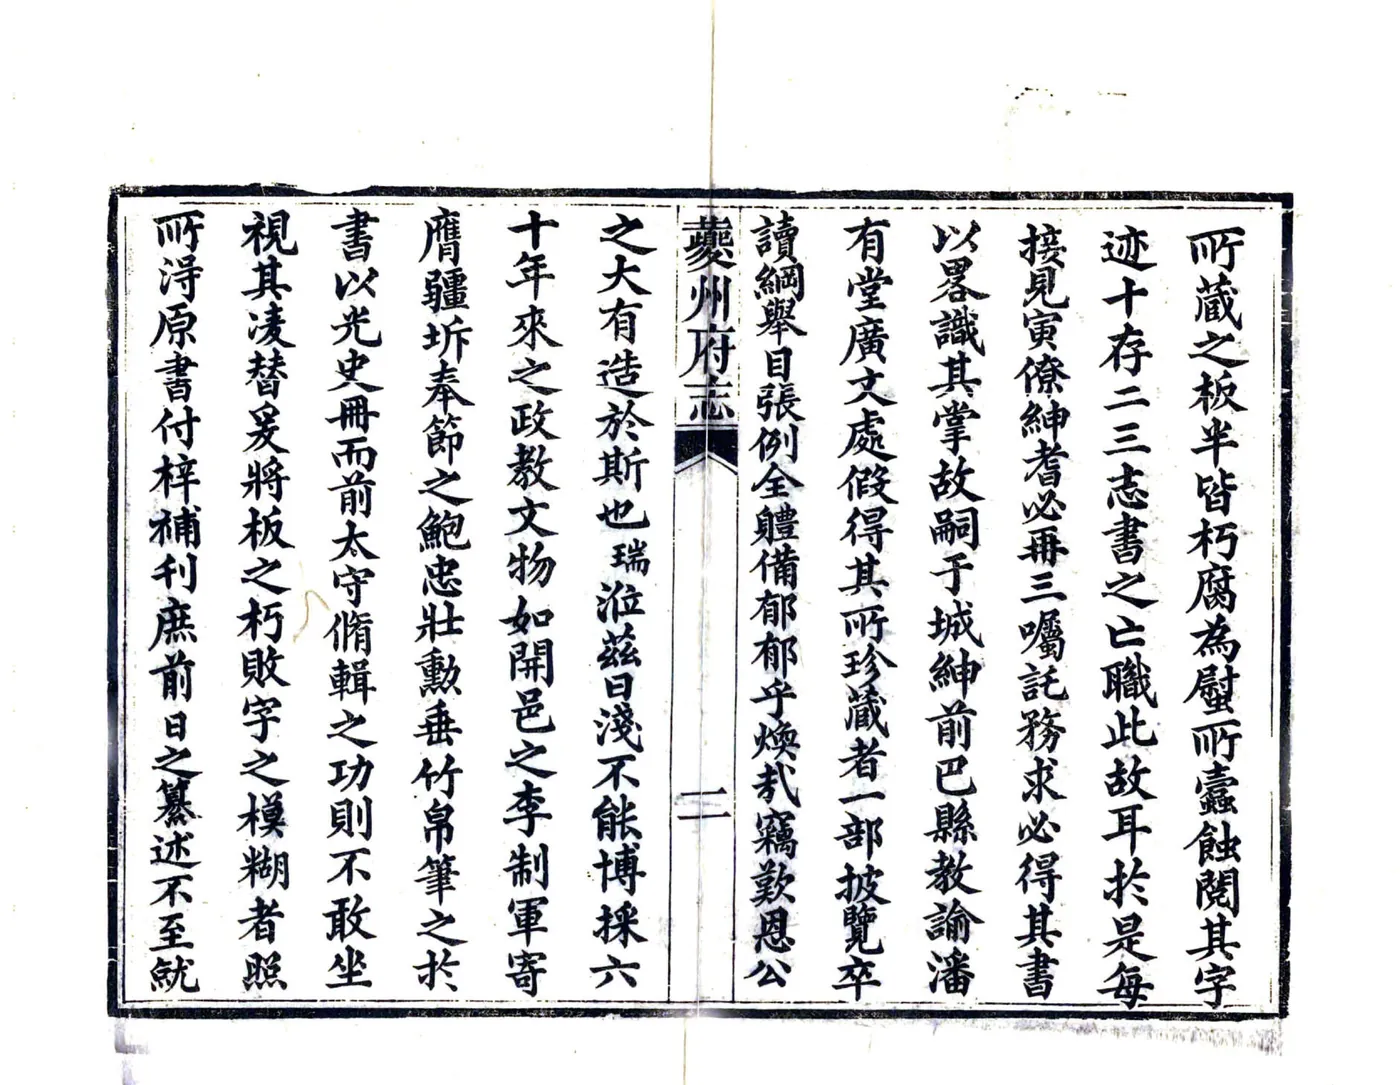 所藏之板半皆朽腐為蟚所蠧蝕閱其字
迹十存二三志書之亡職此故耳於是每
接見寅僚紳耆必再三囑託務求必得其書
以畧識其掌故嗣于城紳前巴縣教諭潘
有堂廣文處假得其所珍藏者一部披覽卒
讀綱舉目張例全軆備郁郁乎煥㢤竊歎恩公
夔州府志
二
之大有造於斯也瑞涖茲日淺不能博採六
十年來之政教文物如開邑之李制軍寄
膺疆圻奉節之鮑忠壯勳垂竹帛筆之於
書以光史冊而前太守脩輯之功則不敢坐
視其凌替爰將板之朽敗字之模糊者照
所淂原書付梓補刋庶前日之纂述不至就